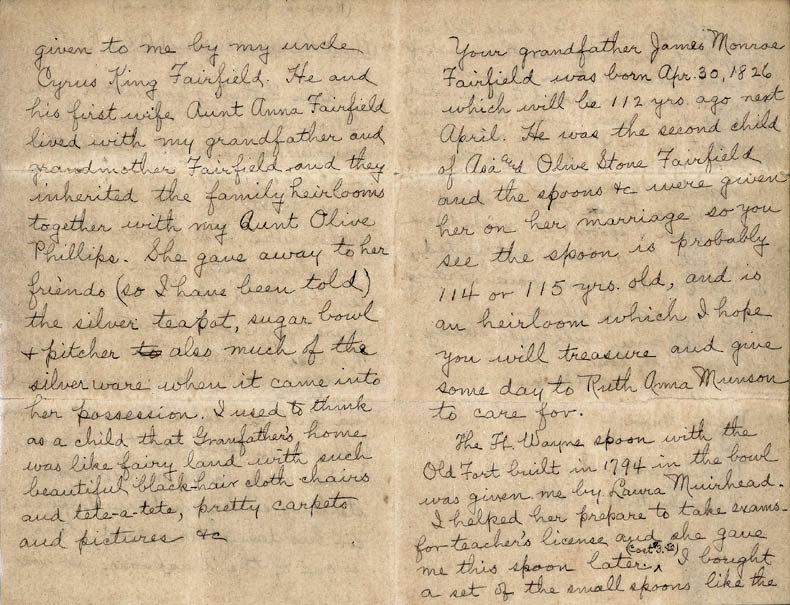 given to me by my uncle
Cyrus King Fairfield. He and
his first wife Aunt Anna Fairfield
lived with my grandfather and
grandmother Fairfield and they
inherited the family heirlooms
together with my Aunt Olive
Phillips. She gave away to her
friends (so I have been told)
the silver teapot, sugar bowl
& pitcher to also much of the
silverware when it came into
her possession. I used to think
as a child that Granfather's home
was like fairy land with such
beautiful black hair cloth chairs
and tete-a-tete, pretty carpets
and pictures &c
Your grandfather James Monroe
Fairfield was born Apr. 30, 1826
which will be 112 yrs. ago next
April. He was the second child
of Asa and Olive Stone Fairfield
and the spoons &c were given
her on her marriage so you
see the spoon is probably
114 or 115 yrs. old, and is
an heirloom which I hope
you will treasure and give
some day to Ruth Anna Munson
to care for.
The Ft. Wayne spoon with the
Old Fort built in 1794 in the bowl
was given me by Laura Muirhead.
I helped her prepare to take exams.
for teacher's license and she gave
me this spoon later. I bought
a set of the small spoons like the